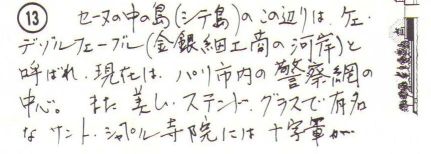 ⑬ セーヌの中の島(シテ島)のこの辺りは、ケ・
デ・ゾルフェーブル(金銀細工商の河岸)と
呼ばれ、現在は、パリ市内の警察網の
中心。また美しいステンド・グラスで有名
なサント・シャペル寺院には十字軍が